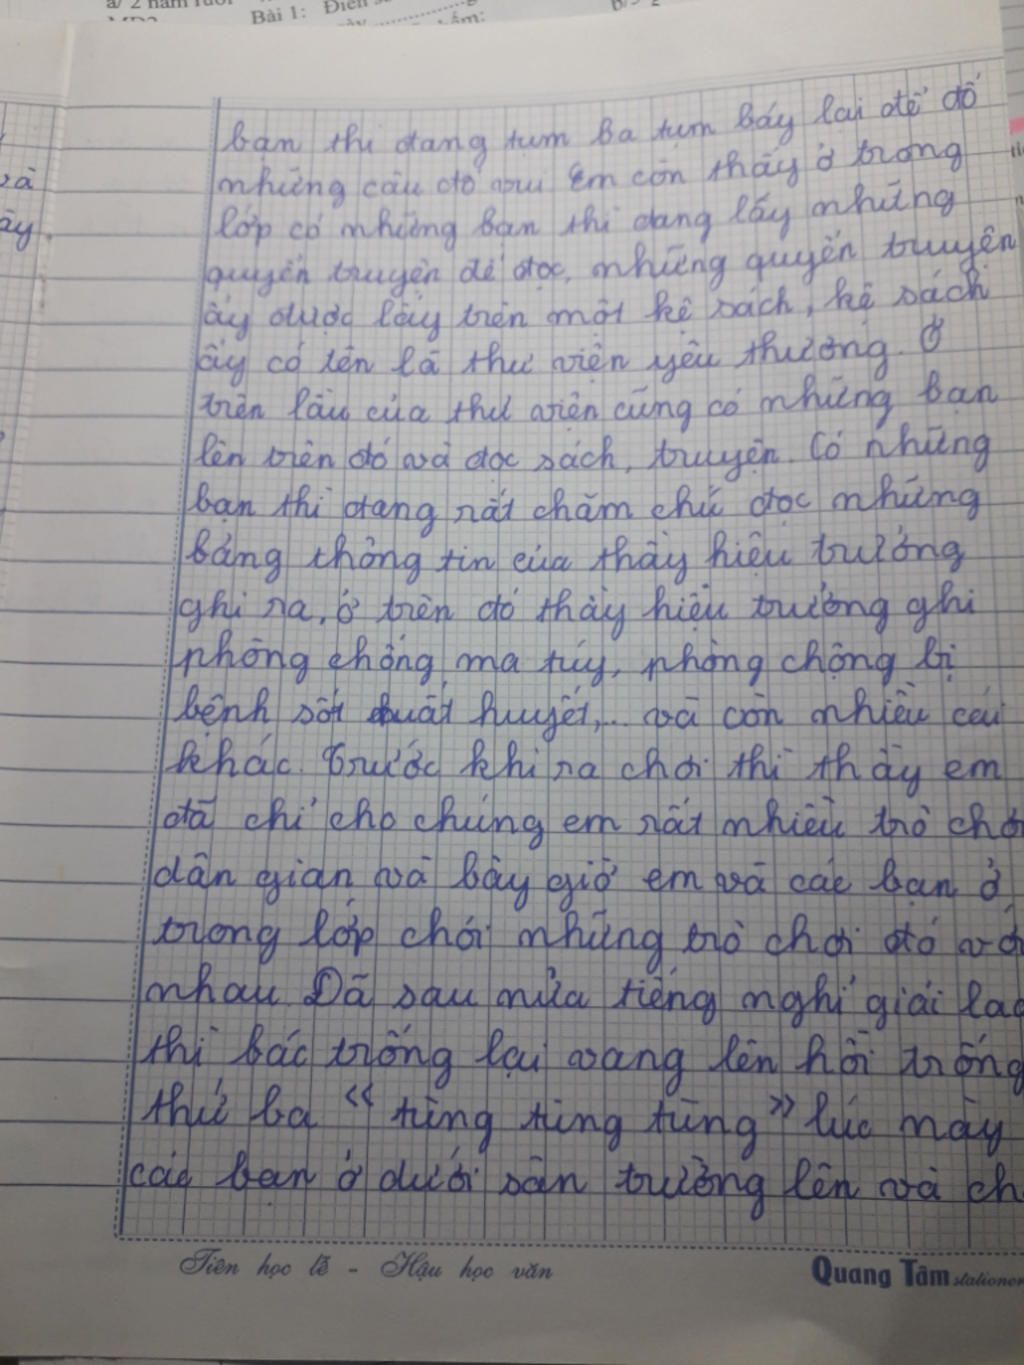 a/ 2 năm rưỡi
Bài 1: Điền
bạn thì đang tụm ba tụm bảy lại để đố
những câu đố vui Em còn thấy ở trong
lớp có những bạn thì đang lấy những
quyển truyện để đọc, những quyển truyện
ấy được lấy trên một kệ sách, kệ sách
ấy có tên là thư viện yêu thương. Ở
trên lầu của thư viện cũng có những bạn
lên trên đó và đọc sách, truyện. Có những
bạn thì đang rất chăm chú đọc những
bảng thông tin của thầy hiệu trưởng
ghi ra, ở trên đó thầy hiệu trưởng ghi
phòng chống ma túy, phòng chống bị
bệnh sốt xuất huyết,... và còn nhiều cái
khác. Trước khi ra chơi thì thầy em
đã chỉ cho chúng em rất nhiều trò chơi
dân gian và bây giờ em và các bạn ở
trong lớp chơi những trò chơi đó với
nhau. Đã sau nửa tiếng nghỉ giải lao
thì bác trống lại vang lên hồi trống
thứ ba “tùng tùng tùng” lúc này
các bạn ở dưới sân trường lên và ch
Tiên học lễ - Hậu học văn
Quang Tâm stationer